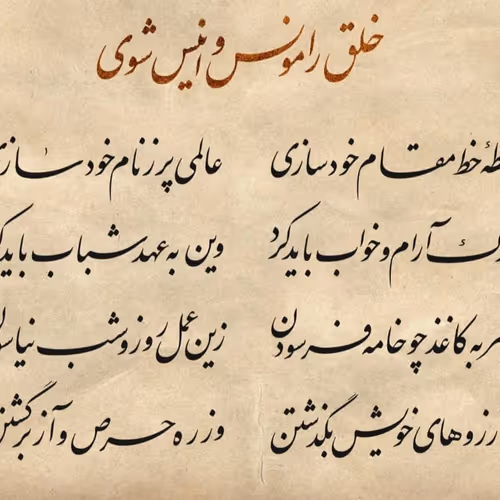 خلق را مونس و انیس شوی
خطهٔ خط مقام خود سازی عالمی پر ز نام خود سازی
ترک آرام و خواب باید کرد وین به عهد شباب باید کرد
سر به کاغذ چو خامه فرسودن زین عمل روز و شب نیاسودن
ز آرزوهای خویش بگذشتن وز ره حرص و آز برگشتن